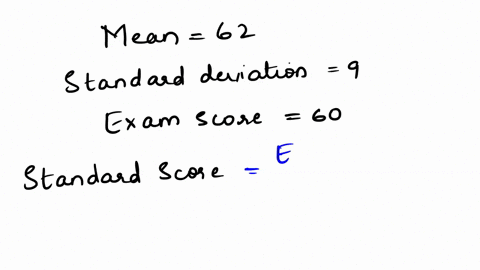 Mean = 62
Standard deviation = 9
Exam score = 60
Standard Score = E